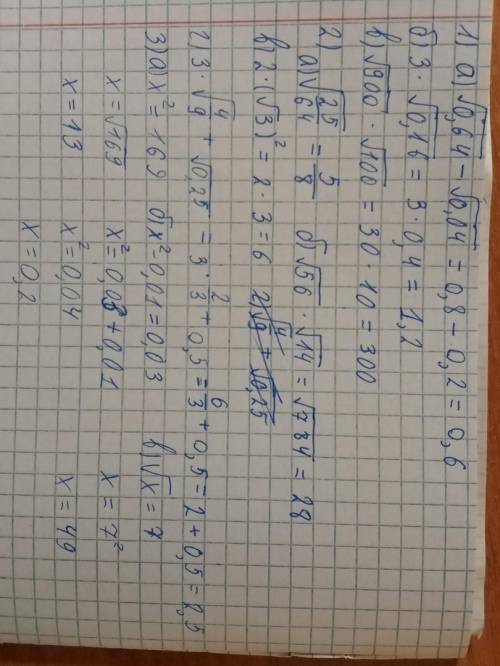 1) а) √0,64 - √0,04 = 0,8 - 0,2 = 0,6
б) 3 · √0,16 = 3 · 0,4 = 1,2
в) √900 · √100 = 30 · 10 = 300
2)
а) √25/64 = 5/8 б) √56 · √14 = √784 = 28
в) 2 · (√3)² = 2 · 3 = 6 г) √4/9 + √0,25
г) 3 · √4/9 + √0,25 = 3 · 2/3 + 0,5 = 6/3 + 0,5 = 2 + 0,5 = 2,5
3) а) x² = 169 б) x² - 0,01 = 0,03 в) √x = 7
x = √169 x² = 0,03 + 0,01 x = 7²
x = 13 x² = 0,04 x = 49
x = 0,2